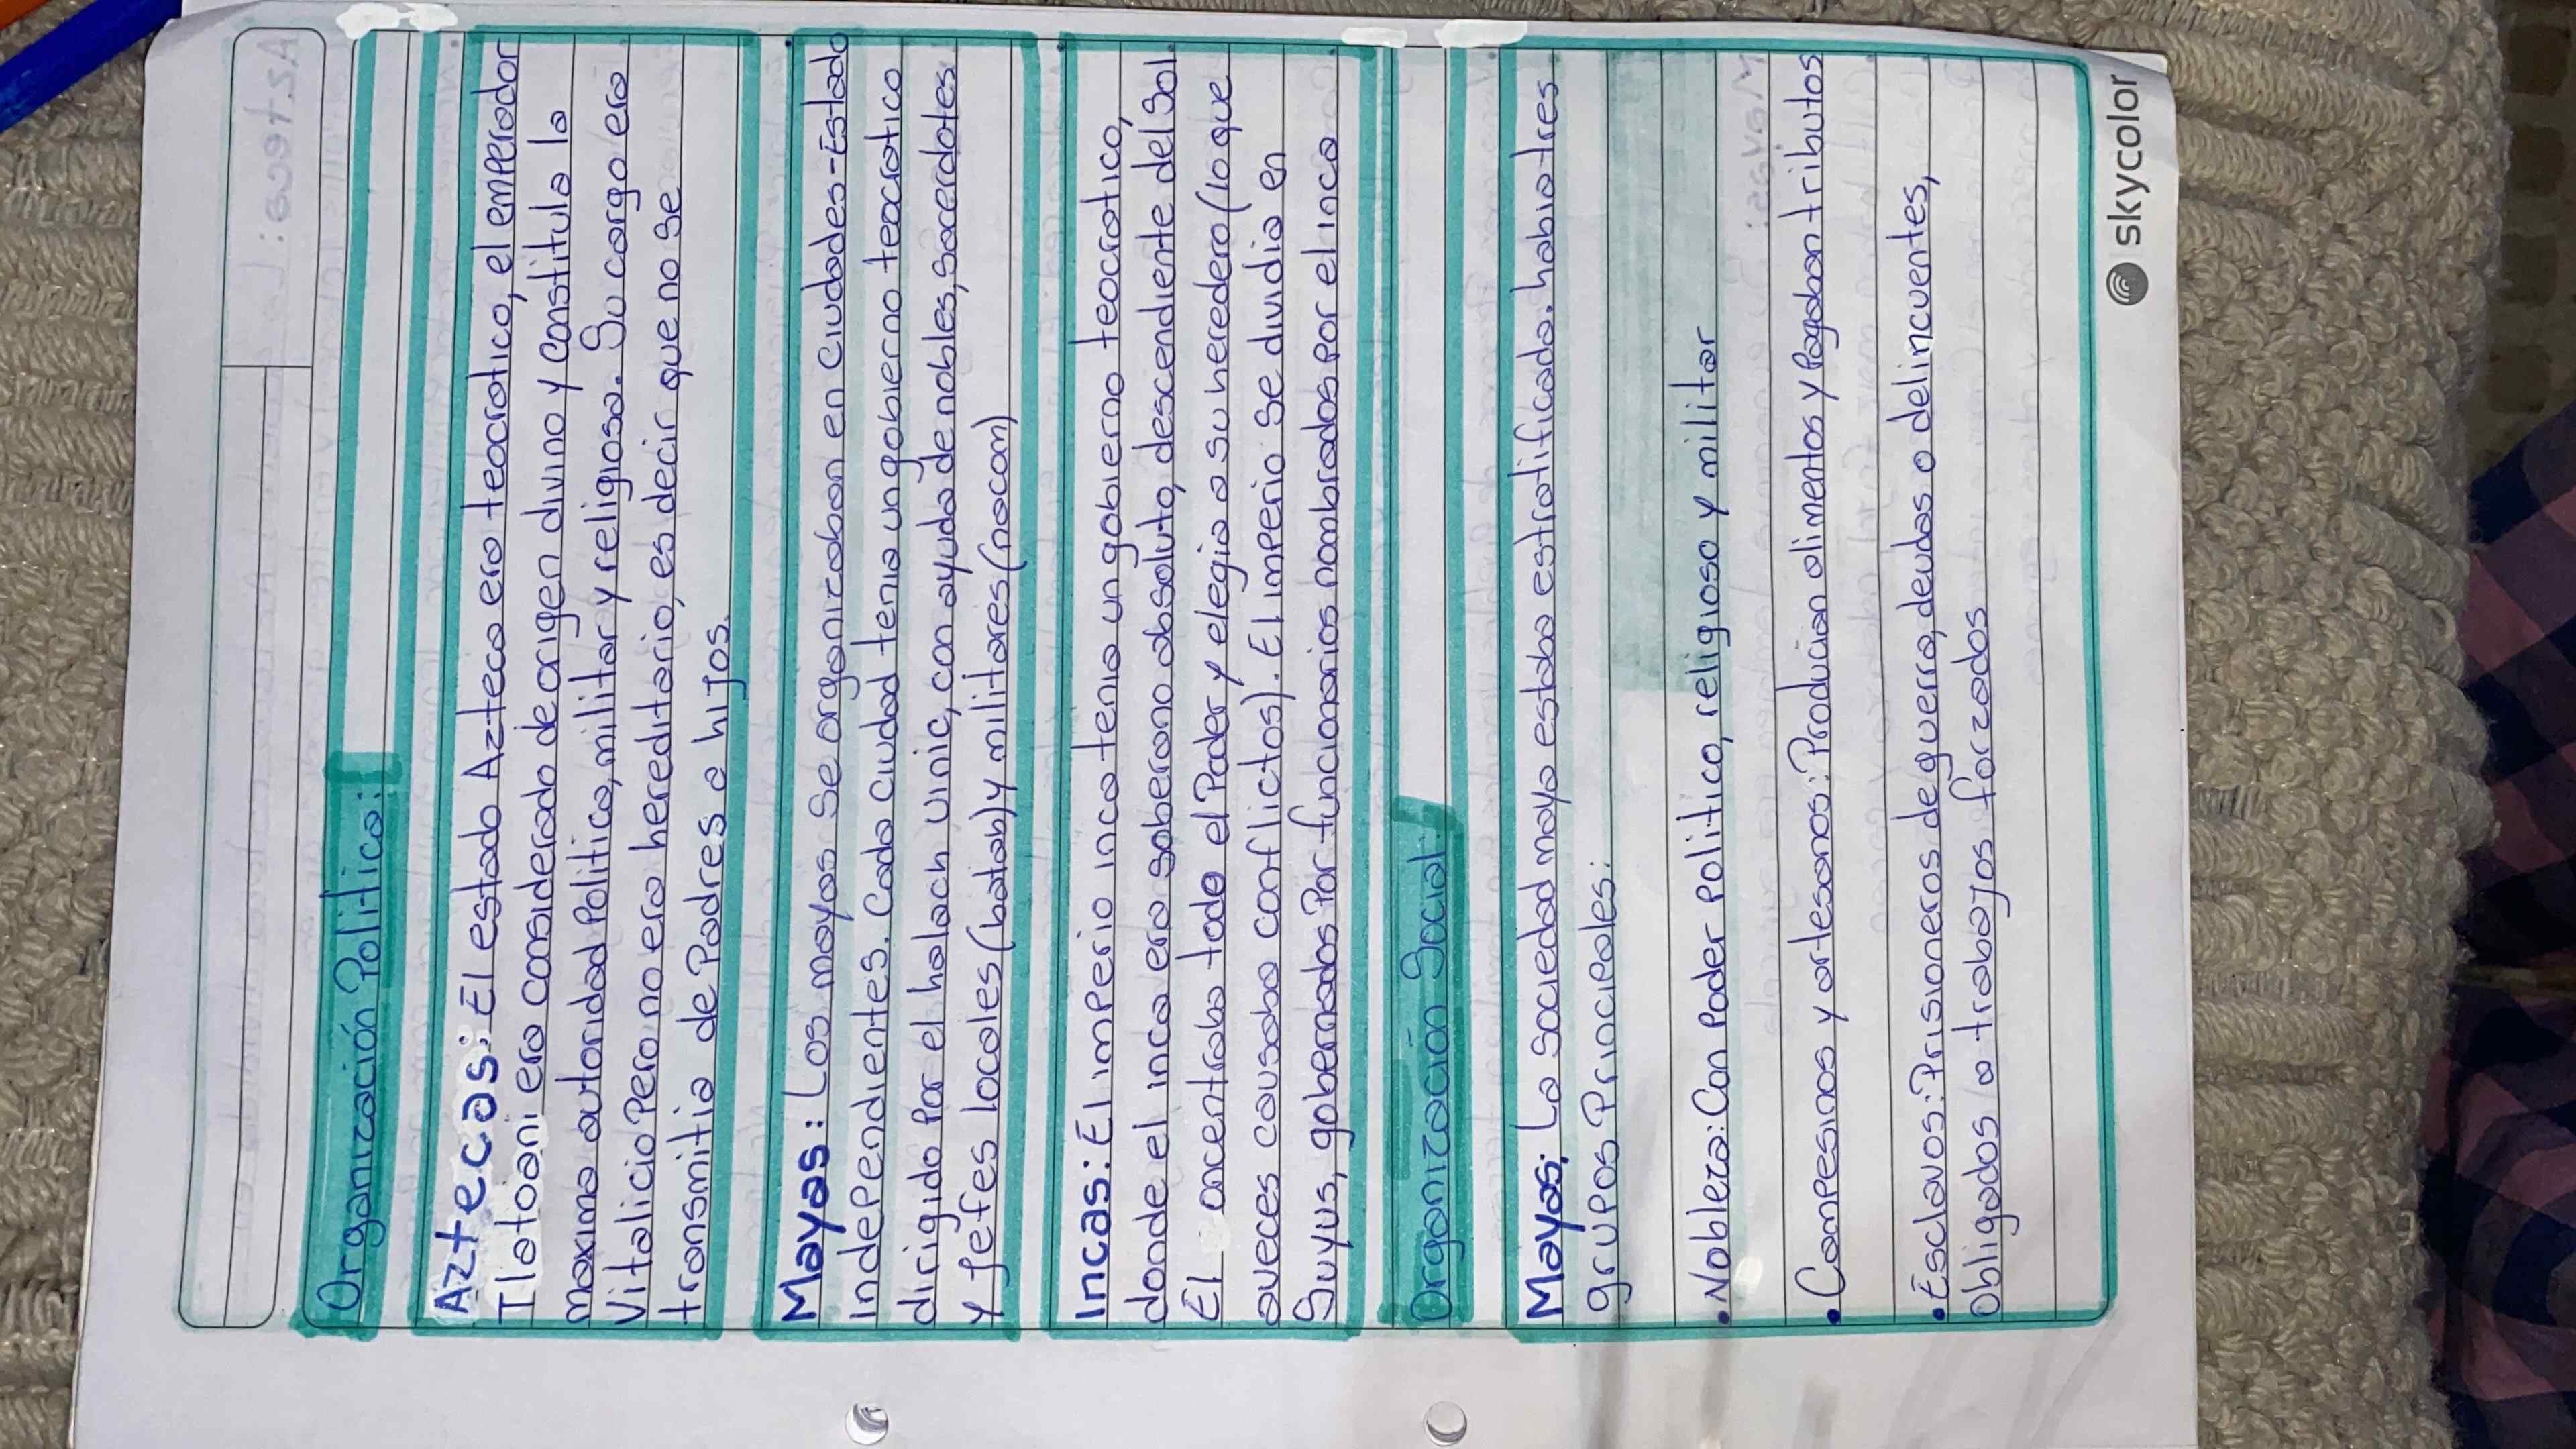 Organización Politica:
Aztecas: El estado Azteca era teocratico, el emperador
Tlatoani era considerado de origen divino y constituia la
maxima autoridad Politica, militar y religiosa. Su cargo era
Vitalicio Pero no era hereditario, es decir que no se
transmitia de Padres a hijos.
Mayas: Los mayas se organizaban en ciudades-Estado
independientes. Cada ciudad tenia un gobierno teocratico
dirigido Por el halach uinic, con ayuda de nobles, sacerdotes
y jefes locales (batab) y militares (nacom)
Incas: El imperio inca tenia un gobierno teocratico,
donde el inca era soberano absoluto, descendiente del Sol.
El concentraba todo el Poder y elegia a su heredero (lo que
aveces causaba conflictos). El imperio se dividia en
Suyus, gobernados Por funcionarios nombrados por el inca
Organización Social
Mayas: La sociedad maya estaba estratificada. habia tres
grupos Principales:
• Nobleza: Con Poder Politico, religioso y militar
• Campesinos y artesanos: Producian alimentos y Pagaban tributos
• Esclavos: Prisioneros de guerra, deudas o delincuentes,
Obligados a trabajos forzados
skycolor